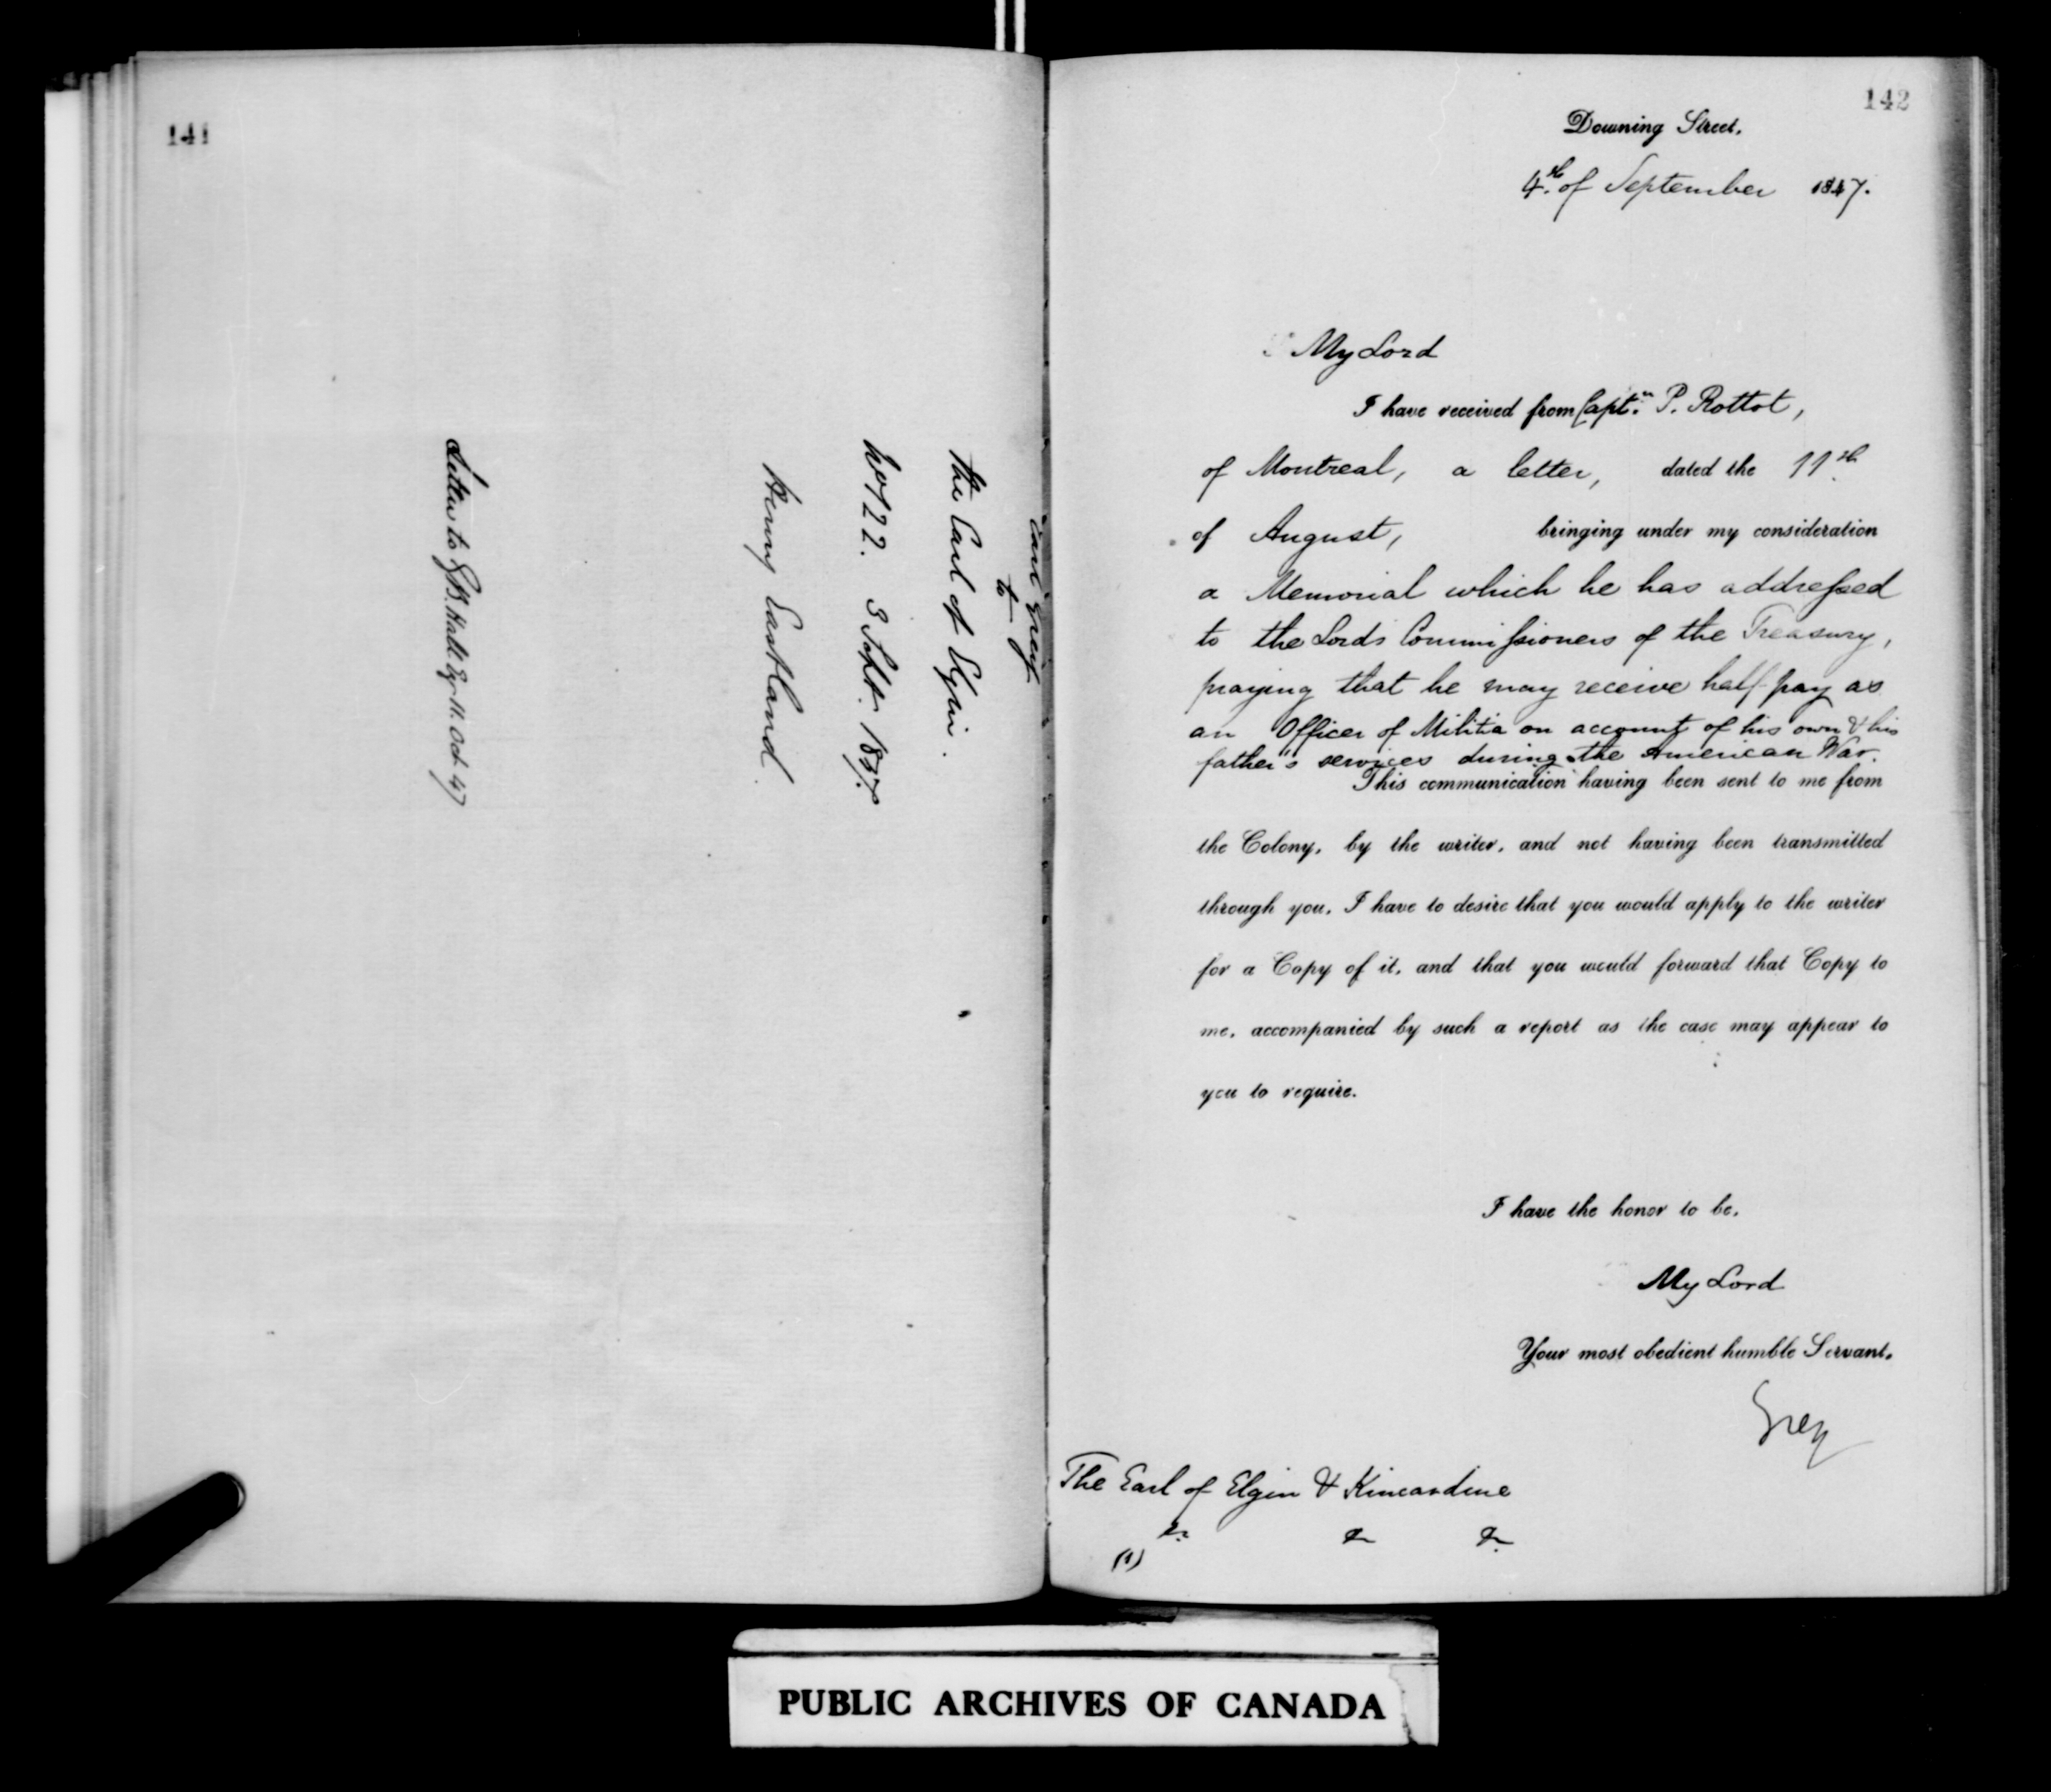 141
Earl Grey
to
The Earl of Elgin.
No 122. 3 Sept. 1847.
Henry Eastland.
Letter to G.B. Hall Esq 11. Oct 47
142
Downing Street,
4th of September 1847.
My Lord
I have received from Captn P. Rottot,
of Montreal, a letter, dated the 11th
of August, bringing under my consideration
a Memorial which he has addressed
to the Lords Commissioners of the Treasury,
praying that he may receive half-pay as
an Officer of Militia on account of his own & his
father's services during the American War.
This communication having been sent to me from
the Colony, by the writer, and not having been transmitted
through you, I have to desire that you would apply to the writer
for a Copy of it, and that you would forward that Copy to
me, accompanied by such a report as the case may appear to
you to require.
I have the honor to be,
My Lord
Your most obedient humble Servant,
Grey
The Earl of Elgin & Kincardine
&c &c &c
(1)
PUBLIC ARCHIVES OF CANADA